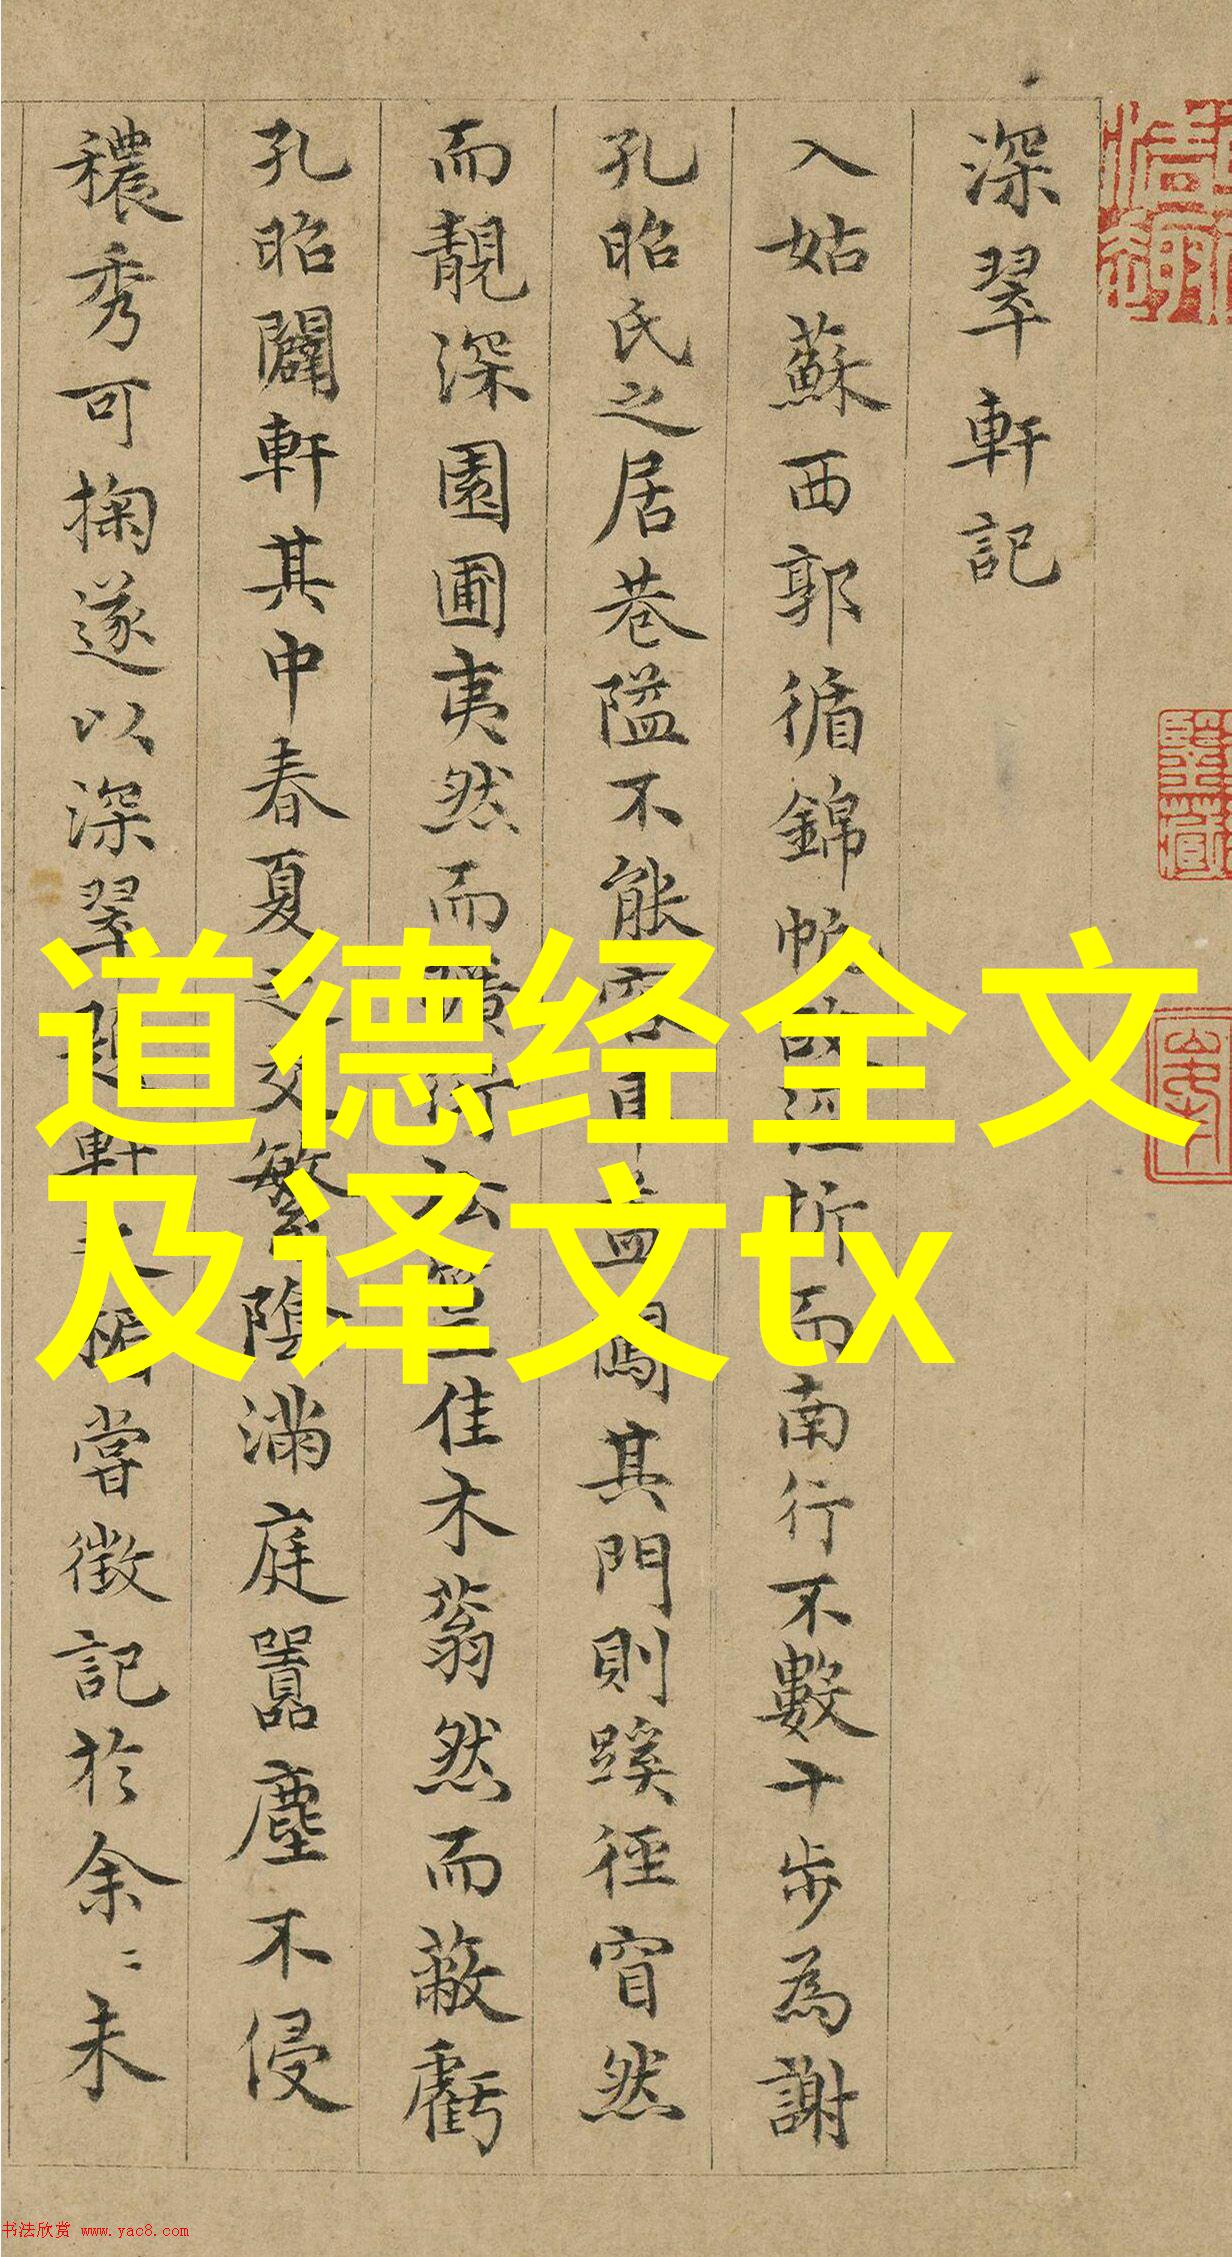 深翠軒記
入姑蘇西郭循錦帆故涇折而南行不數十步為謝
孔昭氏之居巷隘不能容車蓋闖其門則蹊徑窅然
而靚深園圃夷然而曠衍松佳木蓊然而蔽虧
孔昭闢軒其中春夏之交繁陰滿庭囂塵不侵
穠秀可掬遂以深翠題軒之楣嘗徵記於余〻未
道德经全文
及译文tx
书法欣赏 www.yac8.com